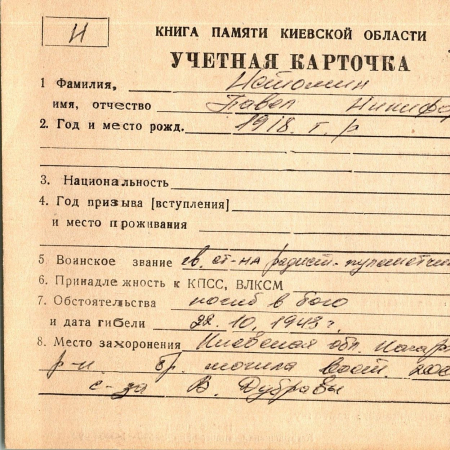 И
КНИГА ПАМЯТИ КИЕВСКОЙ ОБЛАСТИ
УЧЕТНАЯ КАРТОЧКА
1 Фамилия,
имя, отчество Павел Никифо
2. Год и место рожд. 1918 г. р
3. Национальность
4. Год призыва [вступления]
и место проживания
5 Воинское звание гв. ст-на радист-пулеметчи
6. Принадлежность к КПСС, ВЛКСМ
7. Обстоятельства погиб в бою
и дата гибели 22. 10. 1943 г.
8. Место захоронения Киевская обл. Кагар
р-н бр. могила вост.
с-за В. Дубравы